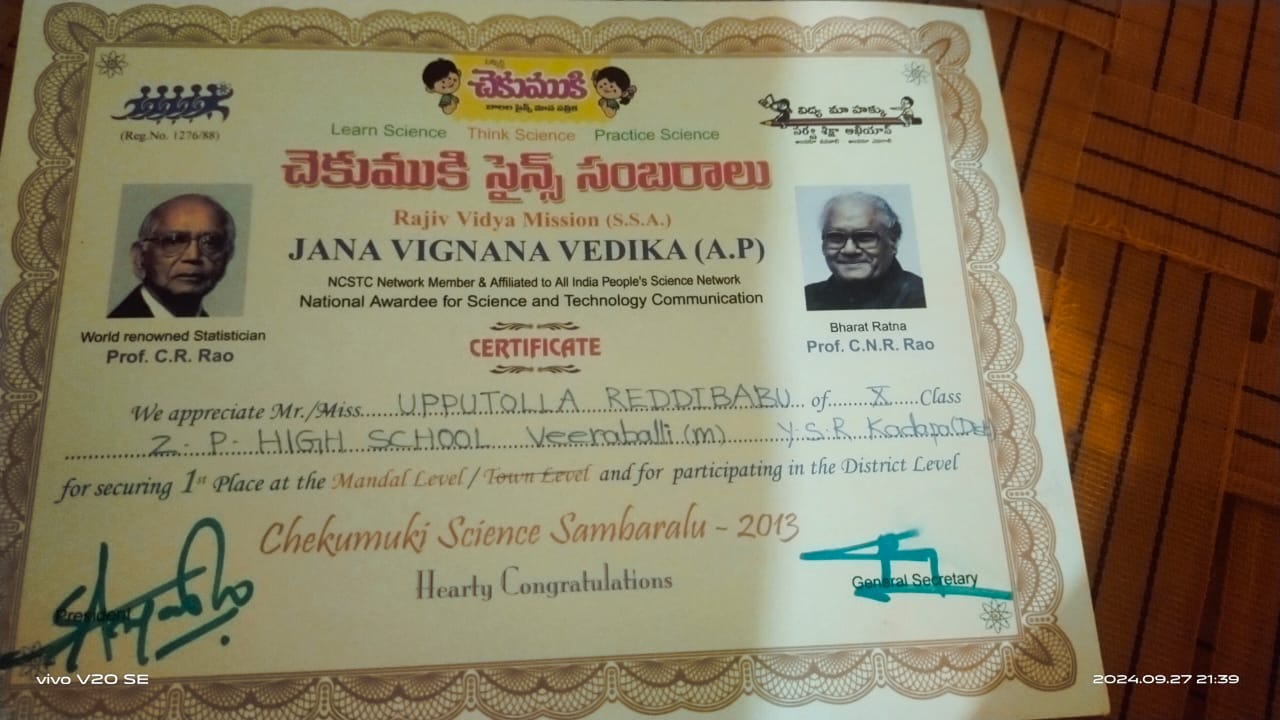 చెకుముకి
బాలల సైన్స్ మాస పత్రిక
(Reg.No. 1276/88)
విద్య మా హక్కు
సర్వ శిక్షా అభియాన్
Learn Science Think Science Practice Science
చెకుముకి సైన్స్ సంబరాలు
Rajiv Vidya Mission (S.S.A.)
JANA VIGNANA VEDIKA (A.P)
NCSTC Network Member & Affiliated to All India People's Science Network
National Awardee for Science and Technology Communication
World renowned Statistician
Prof. C.R. Rao
Bharat Ratna
Prof. C.N.R. Rao
CERTIFICATE
We appreciate Mr./Miss. UPPUTOLLA REDDIBABU of X Class
Z. P. HIGH SCHOOL Veeraballi (m) Y.S.R Kadapa (Dst)
for securing 1st Place at the Mandal Level / Town Level and for participating in the District Level
Chekumuki Science Sambaralu - 2013
Hearty Congratulations
President
General Secretary
vivo V20 SE
2024.09.27 21:39